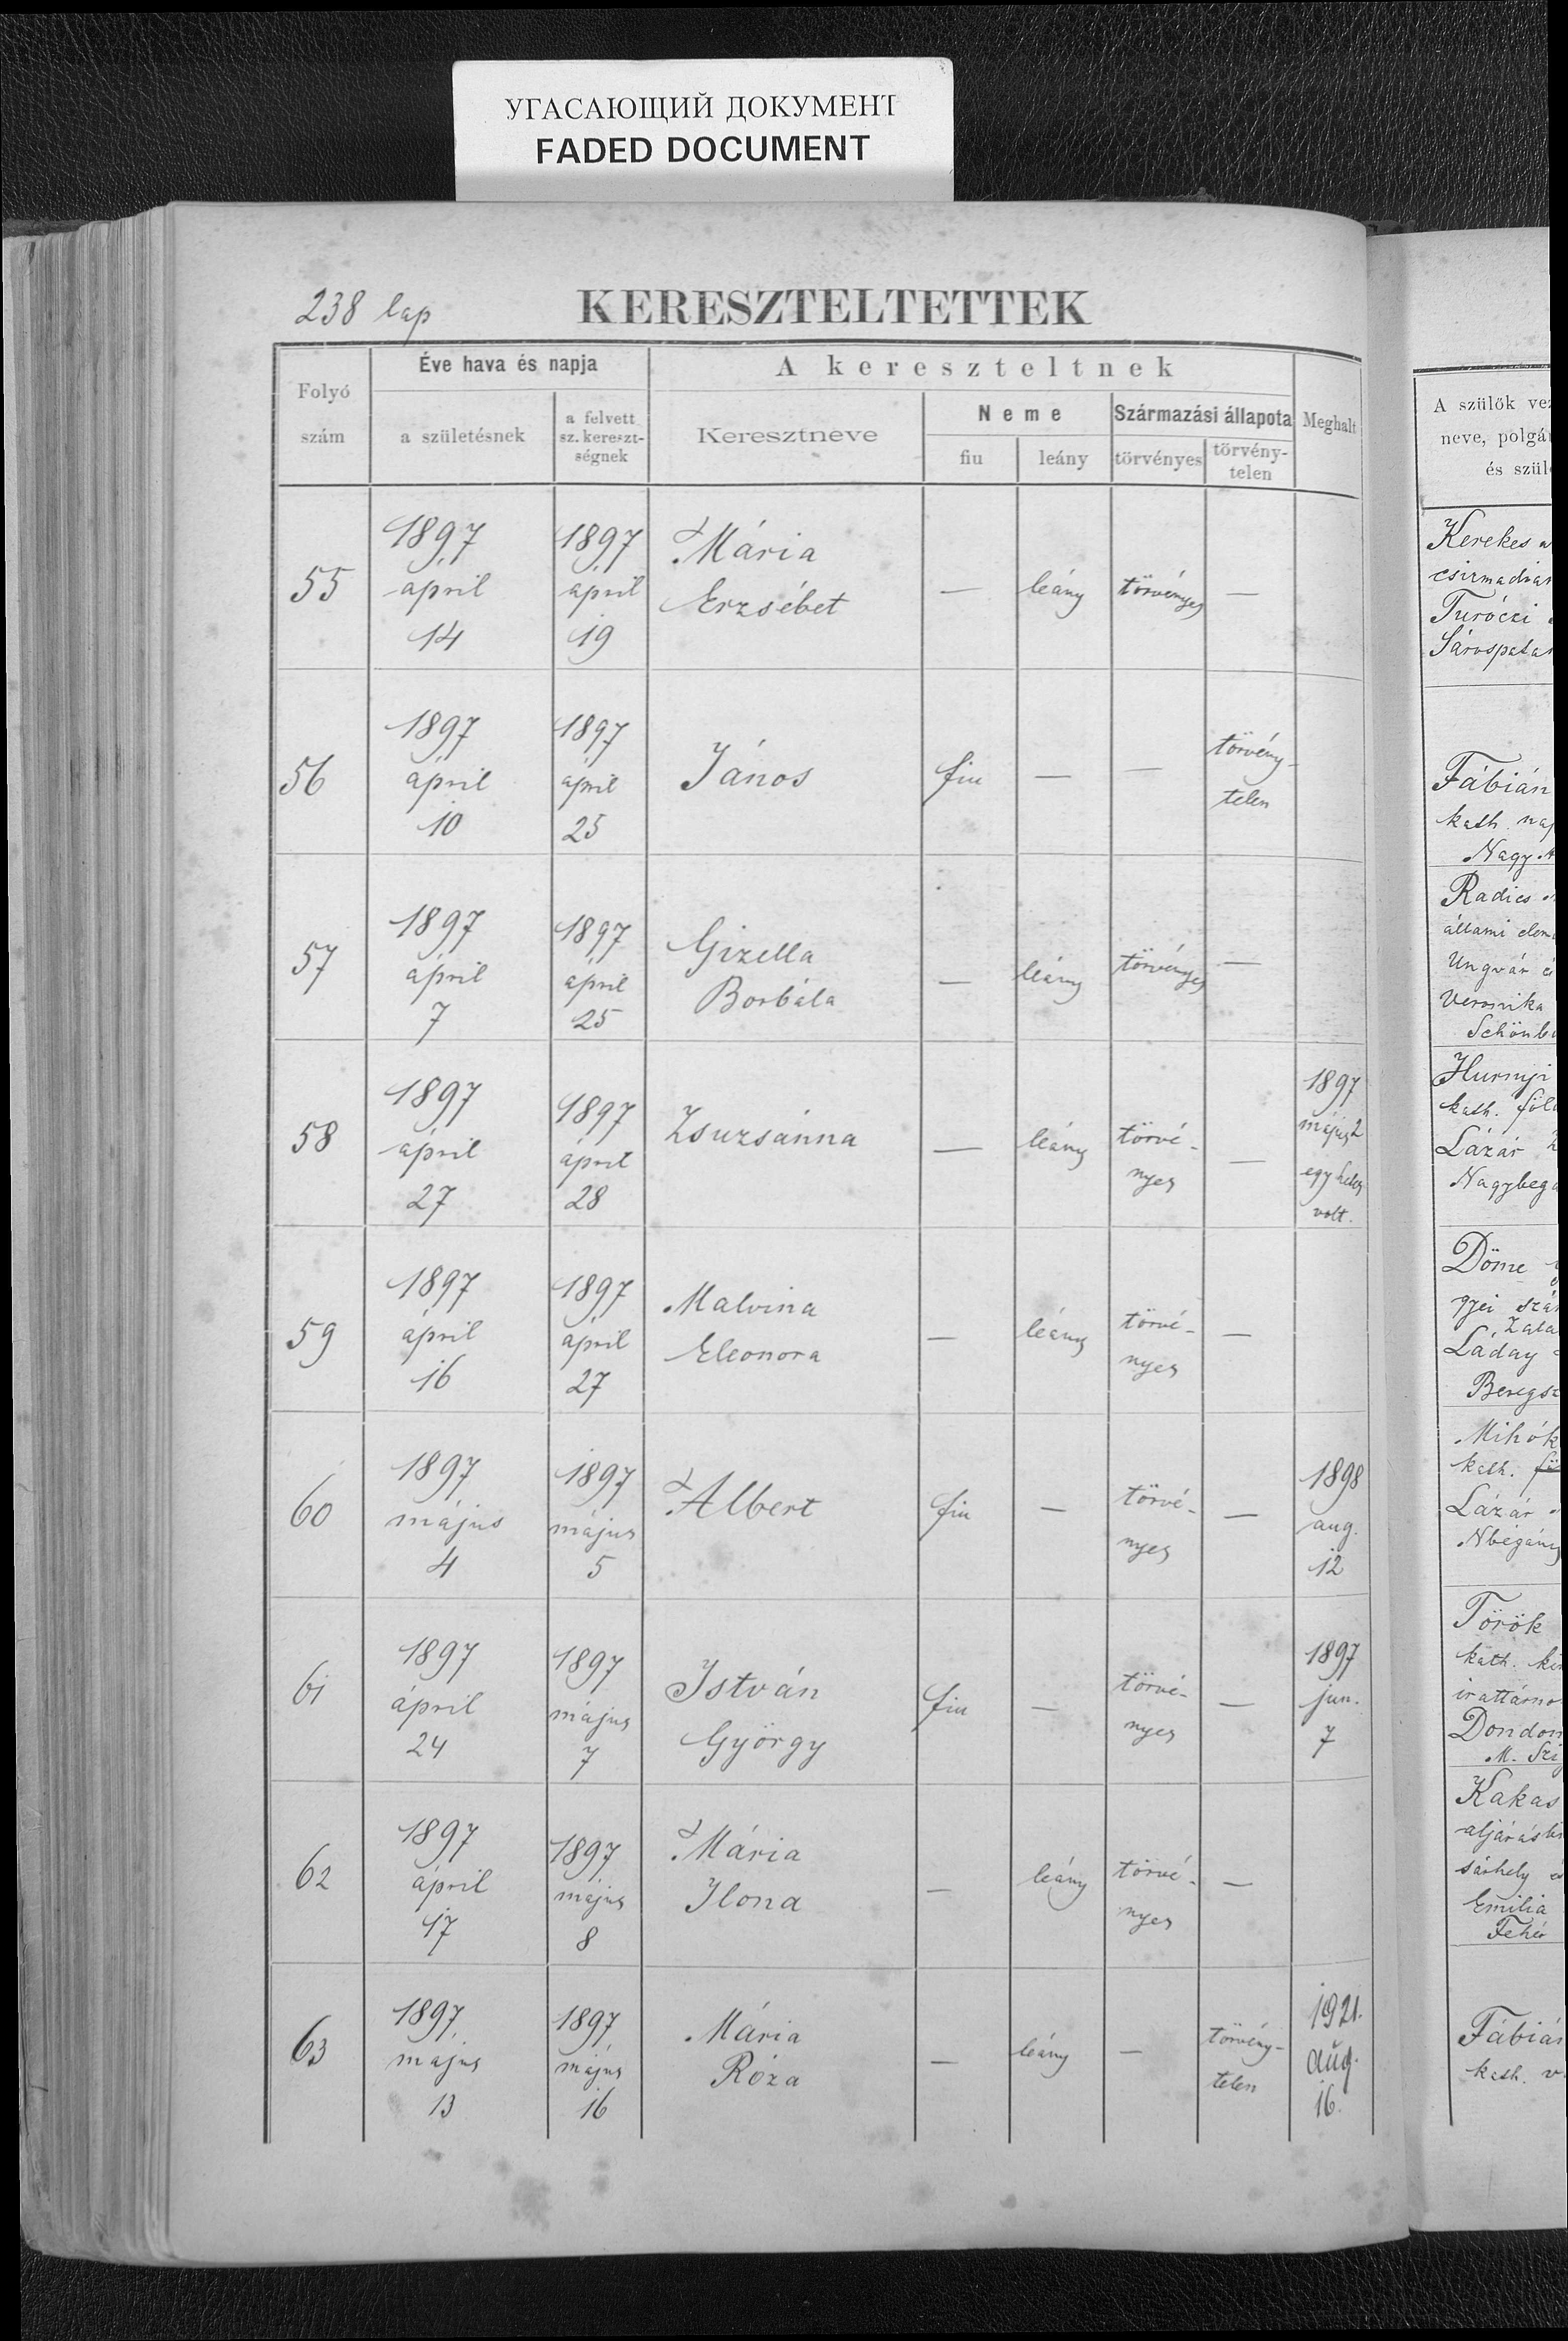 УГАСАЮЩИЙ ДОКУМЕНТ
FADED DOCUMENT
238 lap
KERESZTELTETTEK
Folyó szám
Éve hava és napja
a születésnek
a felvett sz. kereszt-ségnek
A kereszteltnek
Keresztneve
Neme
fiu
leány
Származási állapota
törvényes
törvény-telen
Meghalt
55
1897 április 14
1897 április 19
Mária
Erzsébet
— leány törvényes —
56
1897 április 10
1897 április 25
János
fiu — — törvény-
telen
57
1897 április 7
1897 április 25
Gizella
Borbála
— leány törvényes —
58
1897 április 27
1897 április 28
Zsuzsánna
— leány törvé-
nyes —
1897
május 2
egy hetes
volt.
59
1897 április 16
1897 április 27
Malvina
Eleonora
— leány törvé-
nyes —
60
1897 május 4
1897 május 5
Albert
fiu — törvé-
nyes —
1898
aug.
12
61
1897 április 24
1897 május 7
István
György
fiu — törvé-
nyes —
1897
jun.
7
62
1897 április 17
1897 május 8
Mária
Ilona
— leány törvé-
nyes —
63
1897 május 13
1897 május 16
Mária
Róza
— leány — törvény-
telen
1921.
aug.
16.
A szülők
neve,
és
Kerekes
Turóczi
Fábián
kath.
Nagy
Radics
állami
Ungvár
Veronika
Hurnyi
kath.
Lázár
Döme
gyei
Láday
kath.
Lázár
Török
kath.
Kakas
sárhely
Emilia
Fehér
kath.